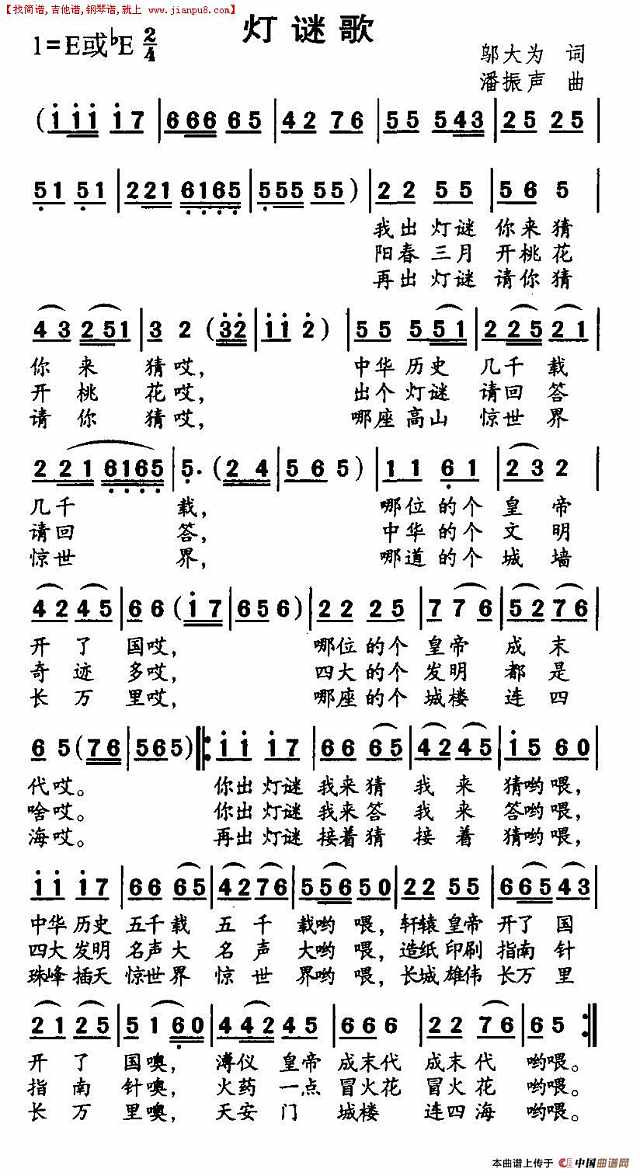 【找简谱,吉他谱,钢琴谱,就上 www.jianpu8.com】
灯谜歌
1=E或♭E 2/4
邬大为 词
潘振声 曲
(i i i i 7 | 6 6 6 6 5 | 4 2 7 6 | 5 5 5 4 3 | 2 5 2 5 |
5 1 5 1 | 2 2 1 6 1 6 5 | 5 5 5 5 5) | 2 2 5 5 | 5 6 5 |
我出 灯谜 你来猜
阳春 三月 开桃花
再出 灯谜 请你猜
4 3 2 5 1 | 3 2 (3 2 | i i 2) | 5 5 5 5 1 | 2 2 5 2 1 |
你来猜哎, 中华 历史 几千载
开桃花哎, 出个 灯谜 请回答
请你猜哎, 哪座 高山 惊世界
2 2 1 6 1 6 5 | 5· (2 4 | 5 6 5) | 1 1 6 1 | 2 3 2 |
几千载, 哪位的个皇帝
请回答, 中华的个文明
惊世界, 哪道的个城墙
4 2 4 5 | 6 6 (i 7 | 6 5 6) | 2 2 2 5 | 7 7 6 | 5 2 7 6 |
开了国哎, 哪位的个皇帝成末
奇迹多哎, 四大的发明都是
长万里哎, 哪座的个城楼连四
6 5 (7 6 | 5 6 5) |: i i i 7 | 6 6 6 5 | 4 2 4 5 | i 5 6 0 |
代哎。 你出 灯谜 我来猜 我来 猜哟喂,
啥哎。 你出 灯谜 我来答 我来 答哟喂,
海哎。 再出 灯谜 接着猜 接着 猜哟喂,
i i i 7 | 6 6 6 5 | 4 2 7 6 | 5 5 6 5 0 | 2 2 5 5 | 6 6 5 4 3 |
中华 历史 五千载 五千 载哟喂, 轩辕 皇帝 开了国
四大 发明 名声大 名声 大哟喂, 造纸 印刷 指南针
珠峰 插天 惊世界 惊世 界哟喂, 长城 雄伟 长万里
2 1 2 5 | 5 1 6 0 | 4 4 2 4 5 | 6 6 6 | 2 2 7 6 | 6 5 :|
开了国噢, 溥仪 皇帝 成末代 成末代 哟喂。
指南针噢, 火药 一点 冒火花 冒火花 哟喂。
长万里噢, 天安门 城楼 连四海 哟喂。
本曲谱上传于 中国曲谱网